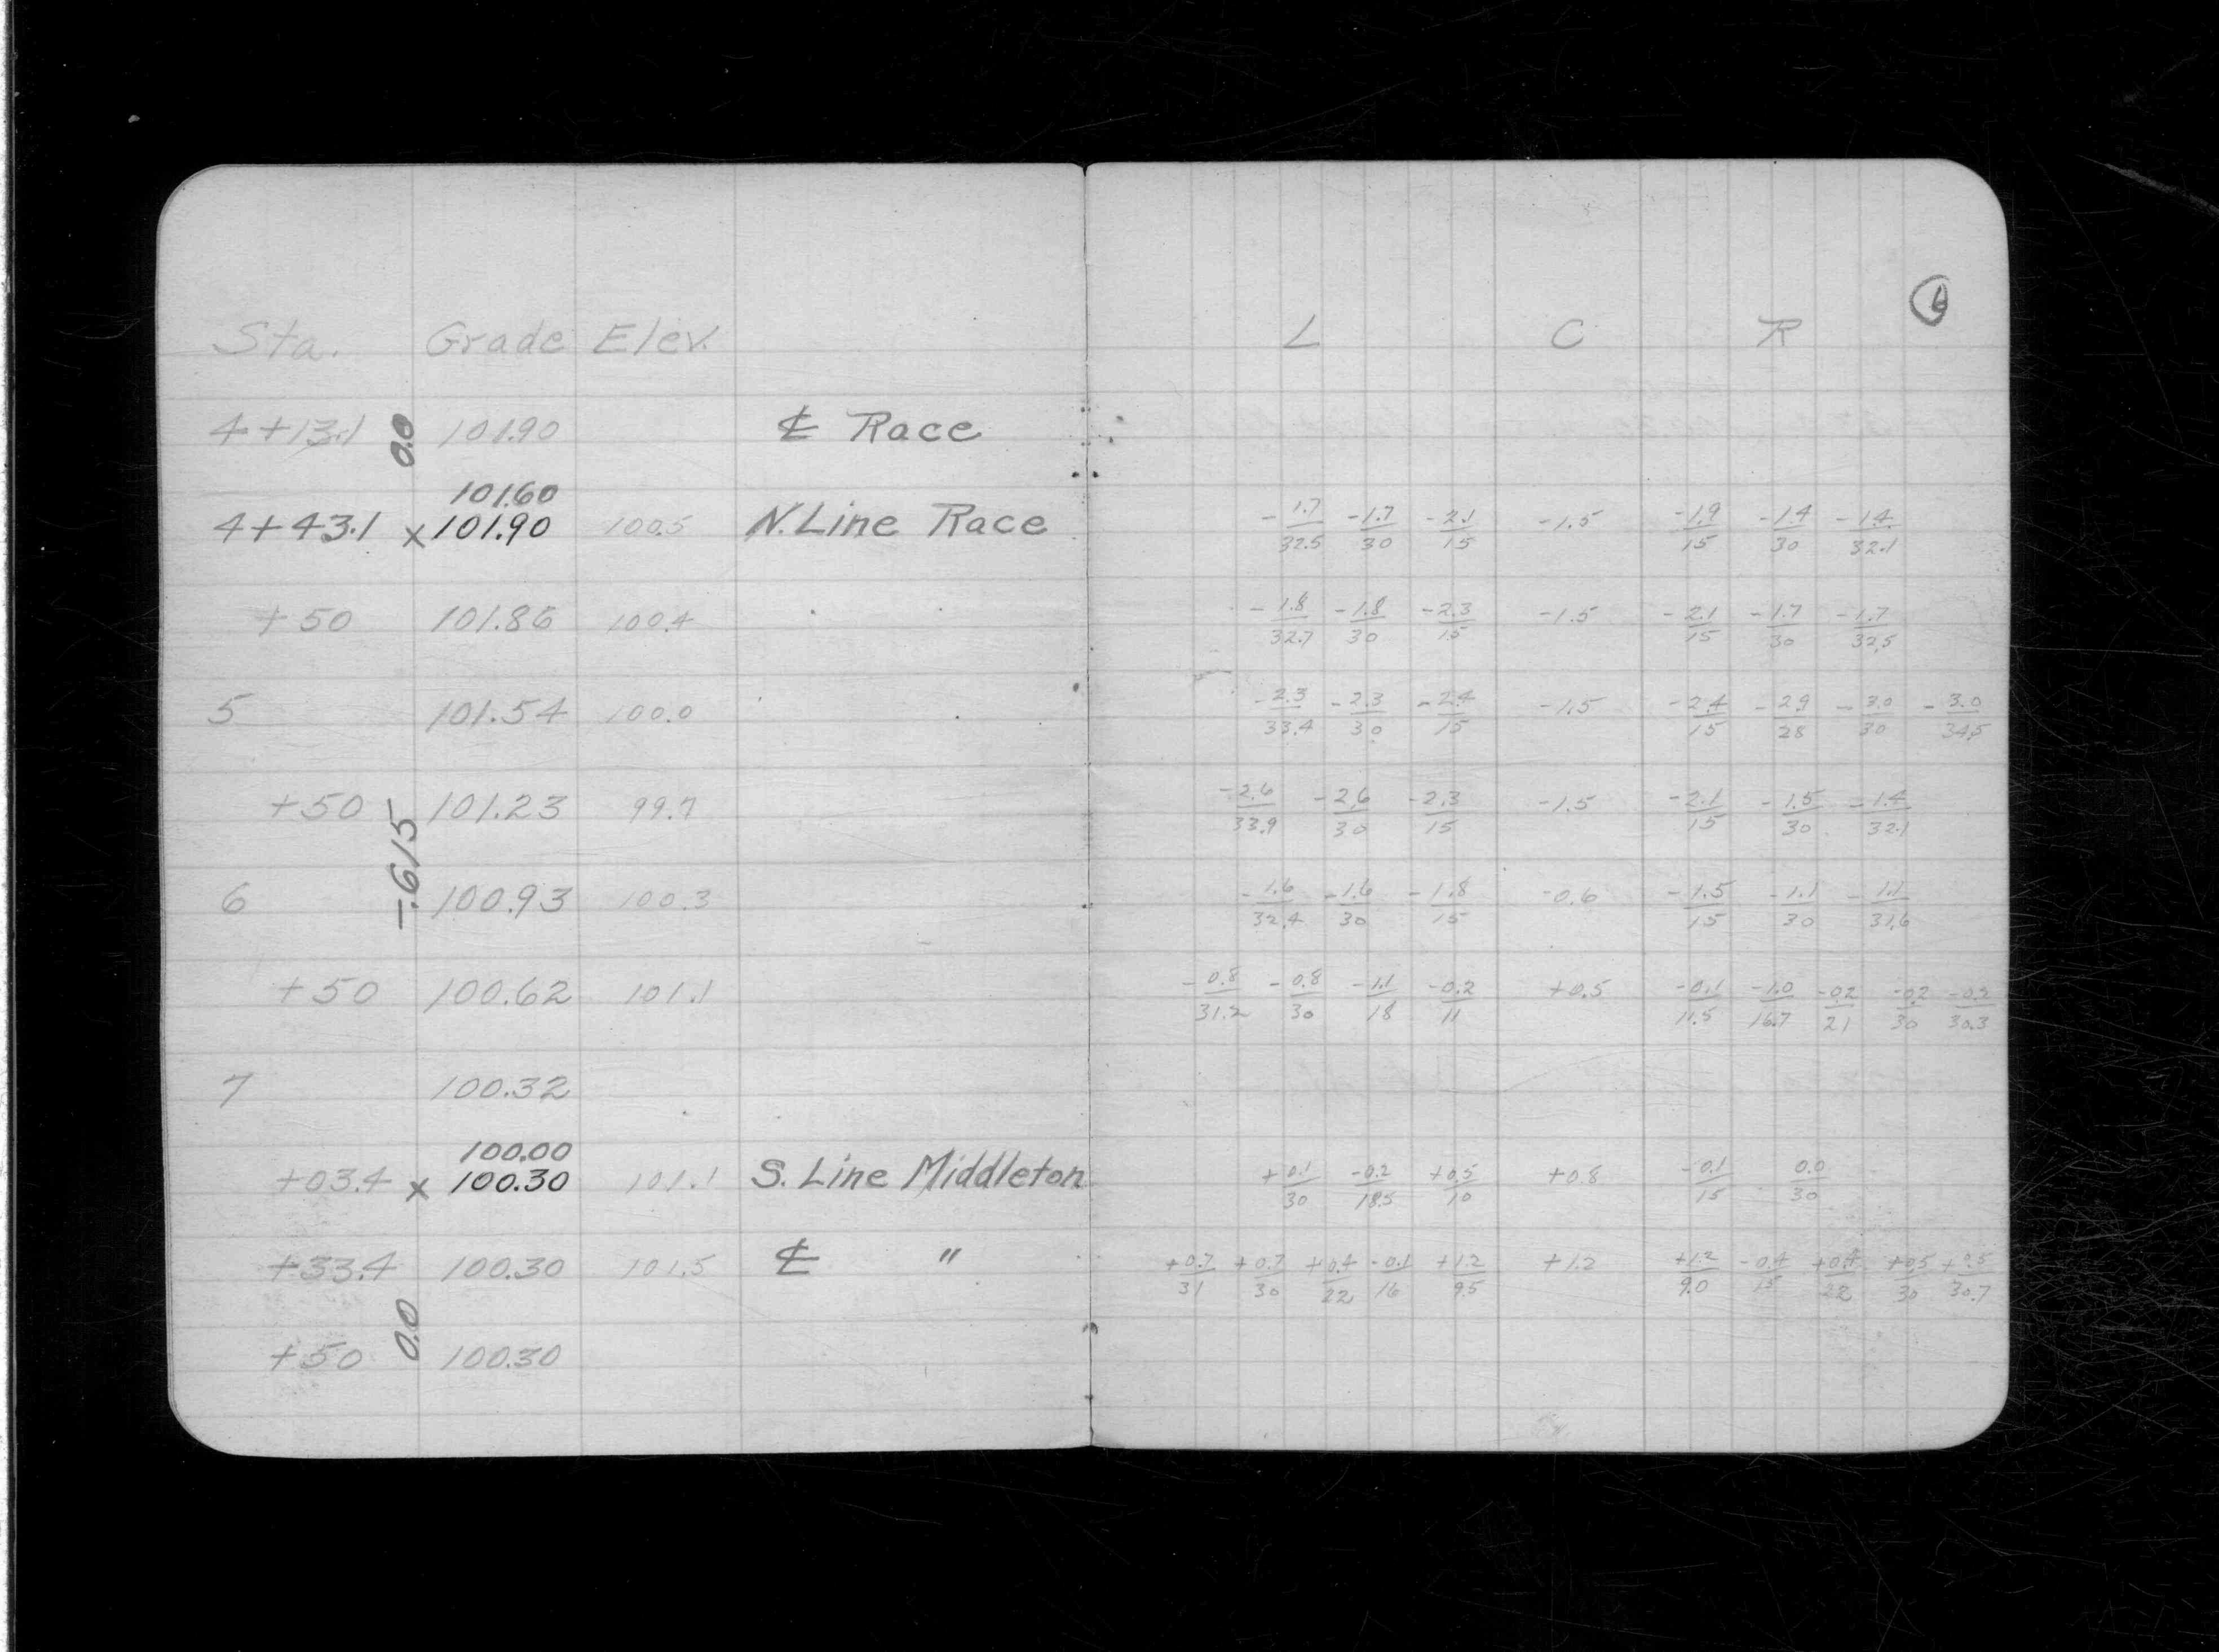 6
Sta. Grade Elev. L C R
4+13.1 0.0 101.90 ℄ Race
101.60
4+43.1 x 101.90 100.5 N. Line Race -1.7/32.5 -1.7/30 -2.1/15 -1.5 -1.9/15 -1.4/30 -1.4/32.1
+50 101.86 100.4 -1.8/32.7 -1.8/30 -2.3/15 -1.5 -2.1/15 -1.7/30 -1.7/32.5
5 101.54 100.0 -2.3/33.4 -2.3/30 -2.4/15 -1.5 -2.4/15 -2.9/28 -3.0/30 -3.0/34.5
+50 101.23 99.7 -2.6/33.9 -2.6/30 -2.3/15 -1.5 -2.1/15 -1.5/30 -1.4/32.1
-.615
6 100.93 100.3 -1.6/32.4 -1.6/30 -1.8/15 -0.6 -1.5/15 -1.1/30 -1.1/31.6
+50 100.62 101.1 -0.8/31.2 -0.8/30 -1.1/18 -0.2/11 +0.5 -0.1/11.5 -1.0/16.7 -0.2/21 -0.2/30 -0.2/30.3
7 100.32
100.00
+03.4 x 100.30 101.1 S. Line Middleton +0.1/30 -0.2/18.5 +0.5/10 +0.8 -0.1/15 0.0/30
+33.4 100.30 101.5 ℄ " +0.7/31 +0.7/30 +0.4/22 -0.1/16 +1.2/9.5 +1.2 +1.2/9.0 -0.4/15 +0.4/22 +0.5/30 +0.5/30.7
0.0
+50 100.30